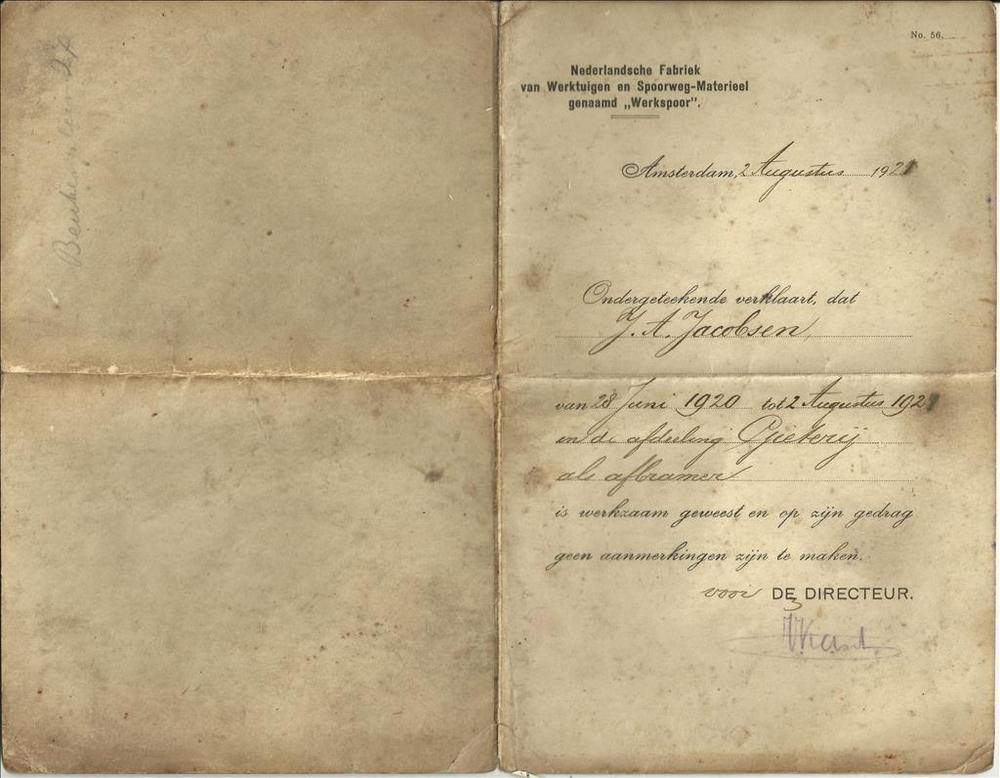 No. 56.
Nederlandsche Fabriek
van Werktuigen en Spoorweg-Materieel
genaamd „Werkspoor".
Amsterdam, 2 Augustus 1921
Ondergeteekende verklaart, dat
J. A. Jacobsen,
van 28 Juni 1920 tot 2 Augustus 1921
in de afdeeling Gieterij
als afbramer
is werkzaam geweest en op zijn gedrag
geen aanmerkingen zijn te maken.
voor DE DIRECTEUR.